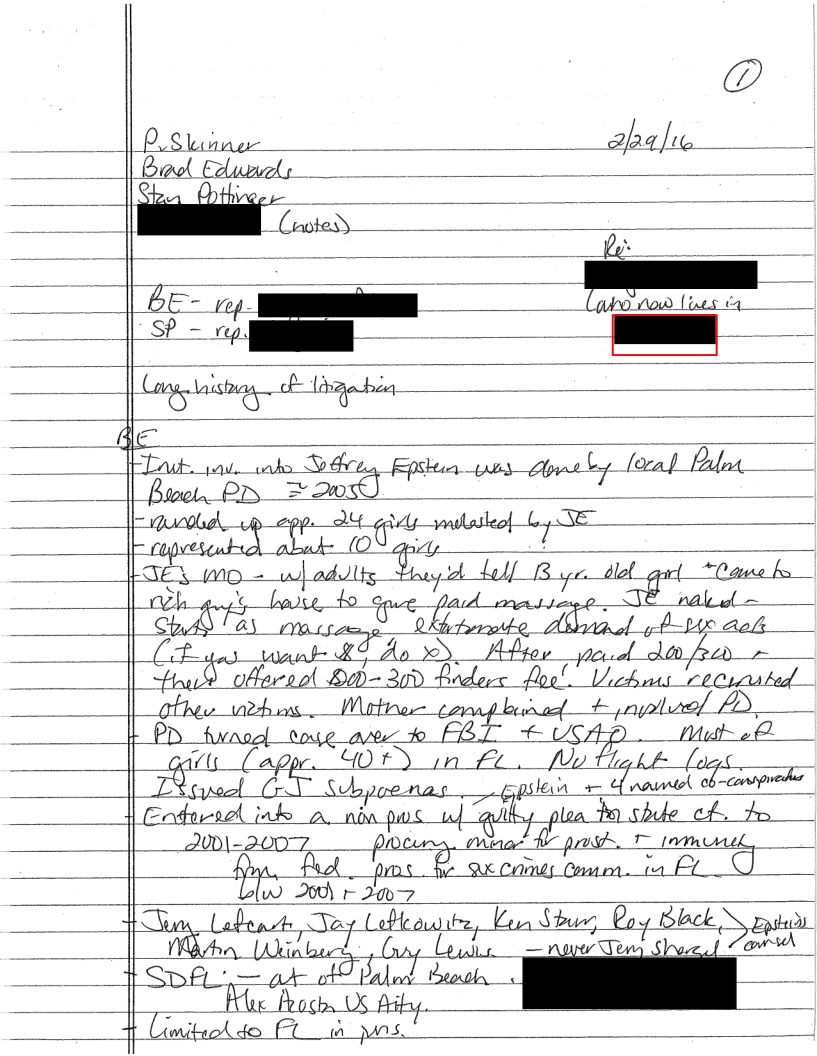 1
P. Skinner 2/29/16
Brad Edwards
Stan Pottinger
(notes)
Re:
BE - rep. (who now lives in
SP - rep.
Long history of litigation
BE
- Init. inv. into Jeffrey Epstein was done by local Palm
Beach PD ≅ 2005
- rounded up app. 24 girls molested by JE
- represented about 10 girls
- JE's MO - w/ adults they'd tell 13 yr. old girl "Come to
rich guy's house to give paid massage. JE naked -
starts as massage, demand of sex acts
(if you want $, do x). After, paid 200/300 +
then offered 200-300 finders fee. Victims recruited
other victims. Mother complained + involved PD.
- PD turned case over to FBI + USAO. Most of
girls (appr. 40+) in FL. No flight logs.
Issued GJ subpoenas. Epstein + 4 named co-conspirators
- Entered into a non pros w/ guilty plea to state ct. to
2001-2007 procuring minor for prost. + immunity
from fed. pros. for sex crimes comm. in FL
b/w 2001 + 2007
- Jerry Lefcourt, Jay Lefkowitz, Ken Starr, Roy Black, Epstein's
Martin Weinberg, Guy Lewis - never Jem counsel
- SDFL - at of Palm Beach.
Alex Acosta US Atty.
- Limited to FL in pros.